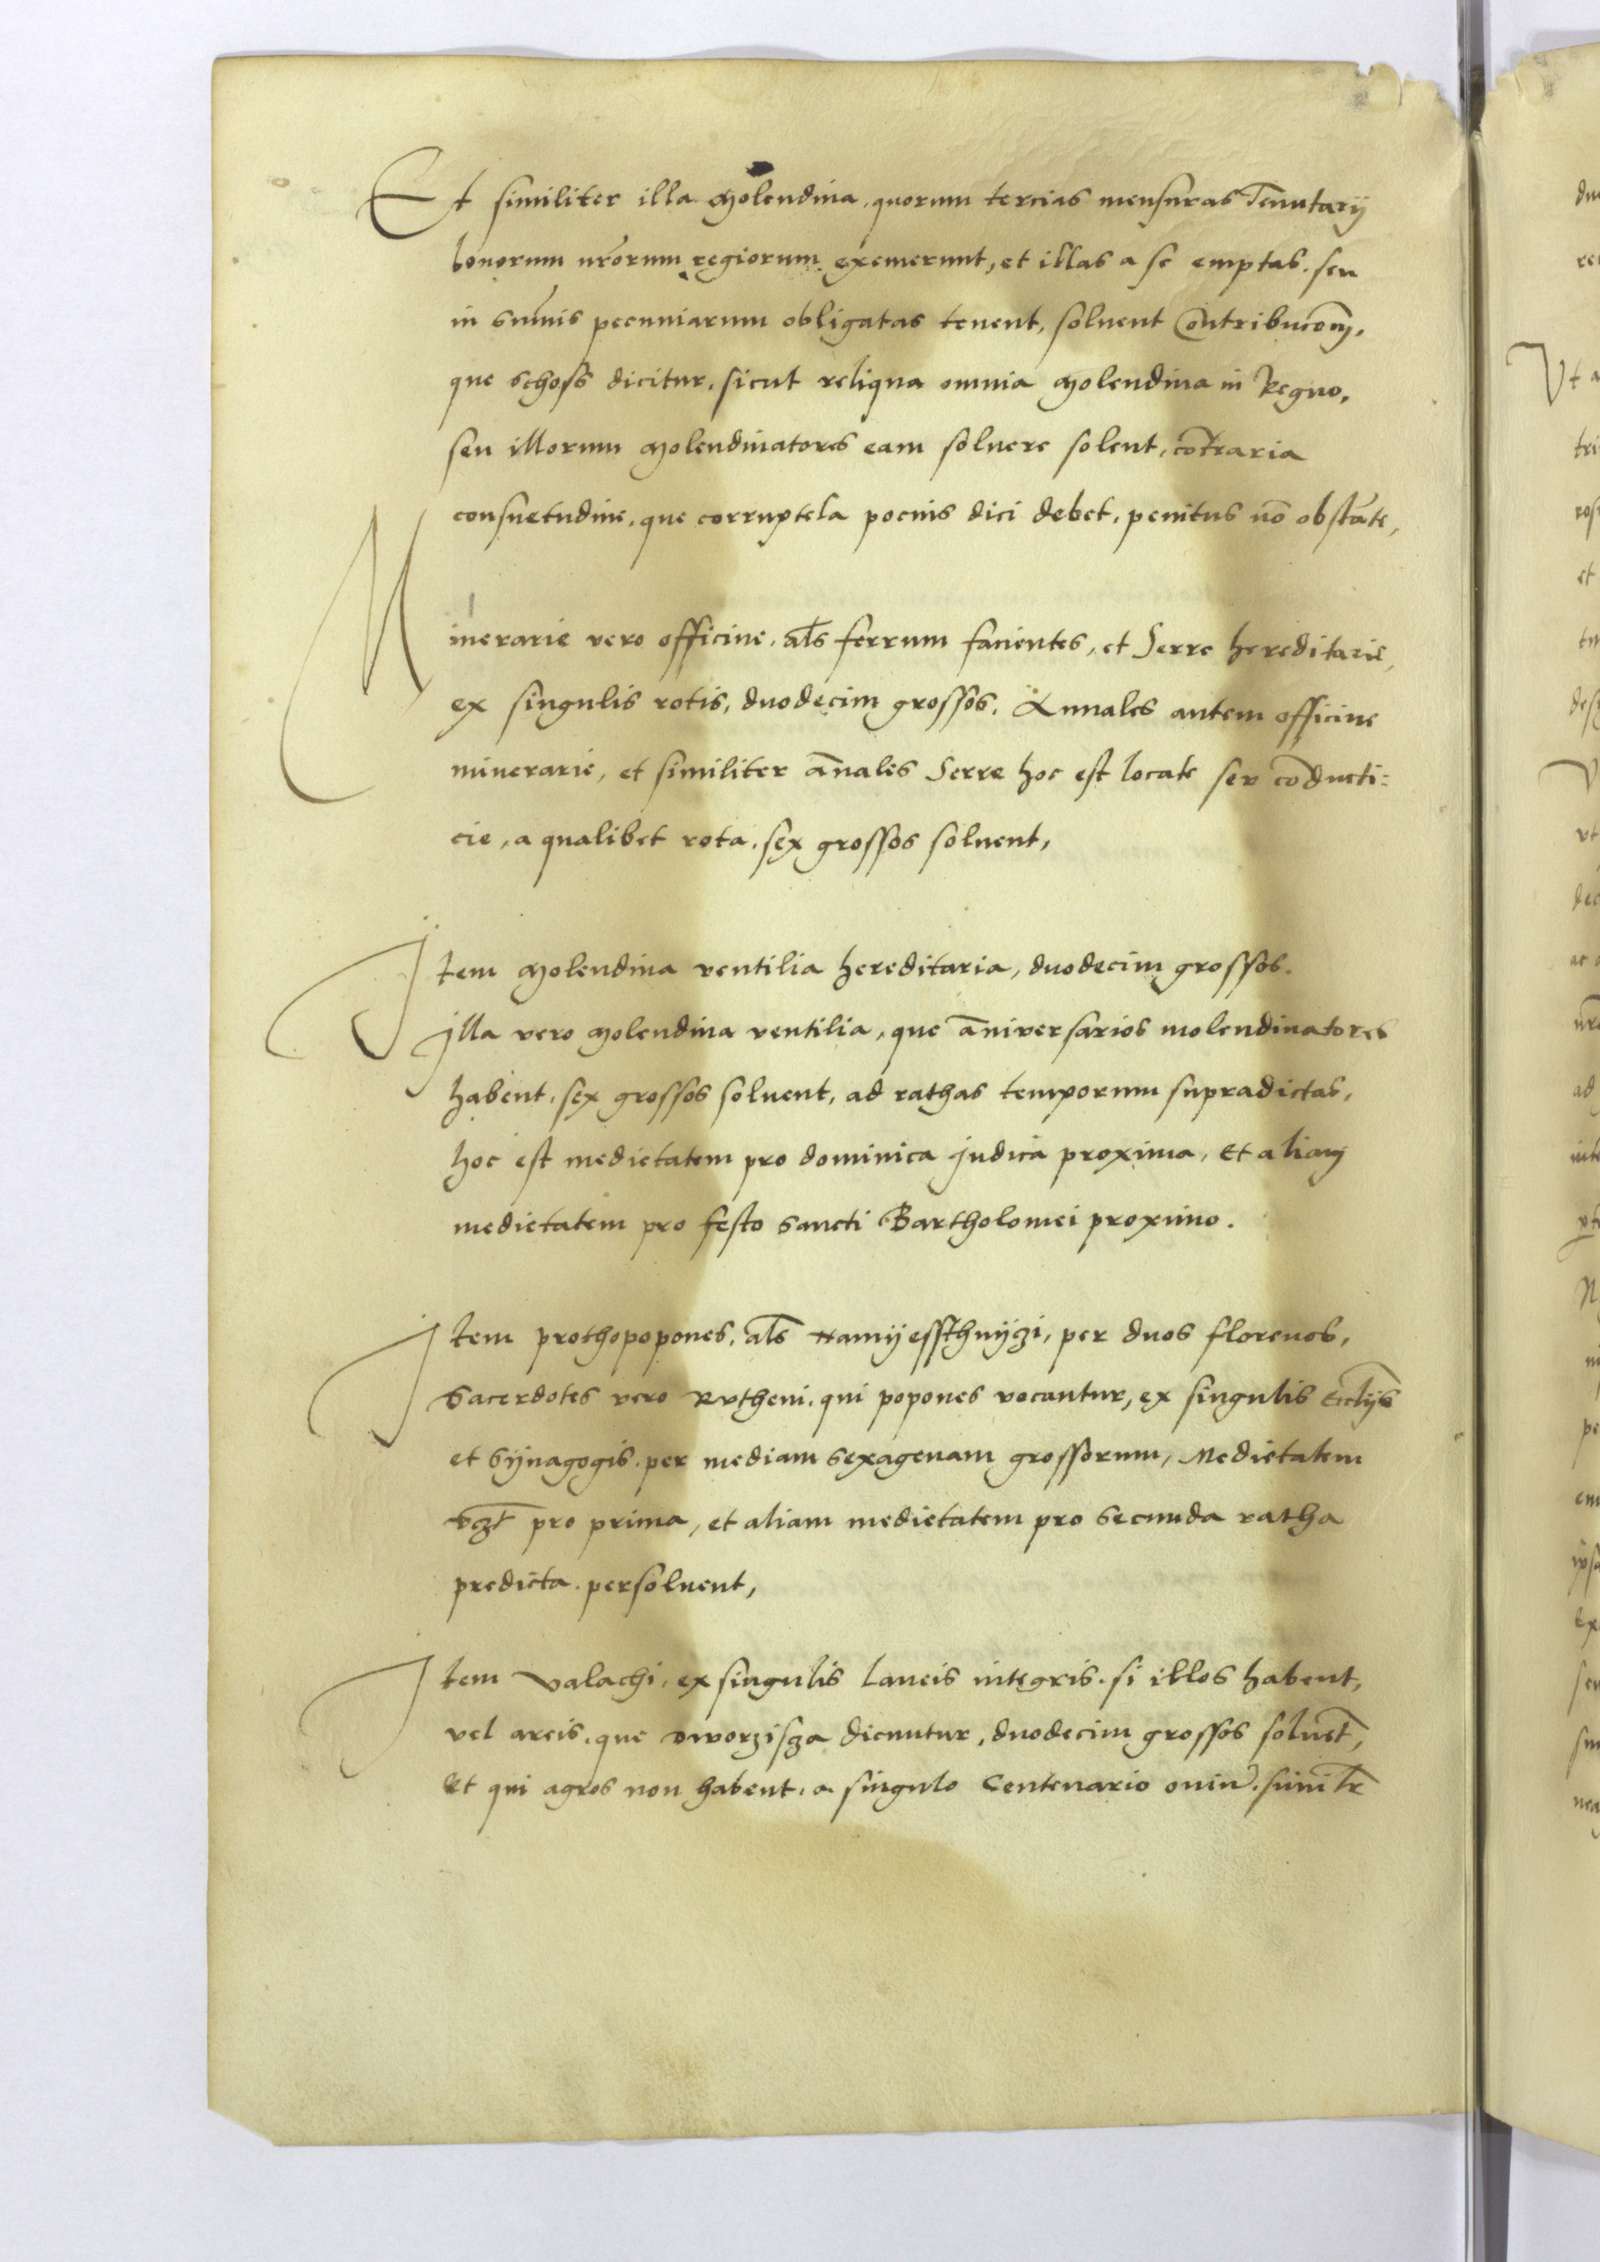 Et similiter illa Molendina, quorum tercias mensuras Tenutarij
bonorum nr̃orum regiorum exemerunt, et illas a se emptas, seu
in sum̃is pecuniarum obligatas tenent, soluent Contribucõem,
que schoss dicitur, sicut reliqua omnia Molendina in Regno,
seu illorum Molendinatores eam soluere solent, cõtraria
consuetudine, que corruptela pocius dici debet, penitus nõ obstãte,
Minerarie vero officine, al̃s ferrum facientes, et Serre hereditarie,
ex singulis rotis, duodecim grossos. Annales autem officine
minerarie, et similiter ãnales Serre hoc est locate seu cõducti:
cie, a qualibet rota, sex grossos soluent,
Item Molendina ventilia hereditaria, duodecim grossos.
Illa vero Molendina ventilia, que ãniversarios molendinatores
habent, sex grossos soluent, ad rathas temporum supradictas,
hoc est medietatem pro dominica Judica proxima, Et aliam
medietatem pro festo Sancti Bartholomei proximo.
Item prothopopones, al̃s Namyessthnyczi, per duos florenos,
Sacerdotes vero Rutheni, qui popones vocantur, ex singulis Eccl̃ijs
et Synagogis, per mediam Sexagenam grossorum, Medietatem
vcz̃t pro prima, et aliam medietatem pro Secunda ratha
predicta persoluent,
Item Valachi, ex singulis Laneis integris, si illos habent,
vel areis, que Dworzisza dicuntur, duodecim grossos soluẽt,
Et qui agros non habent, a singulo Centenario oviũ, simil̃r